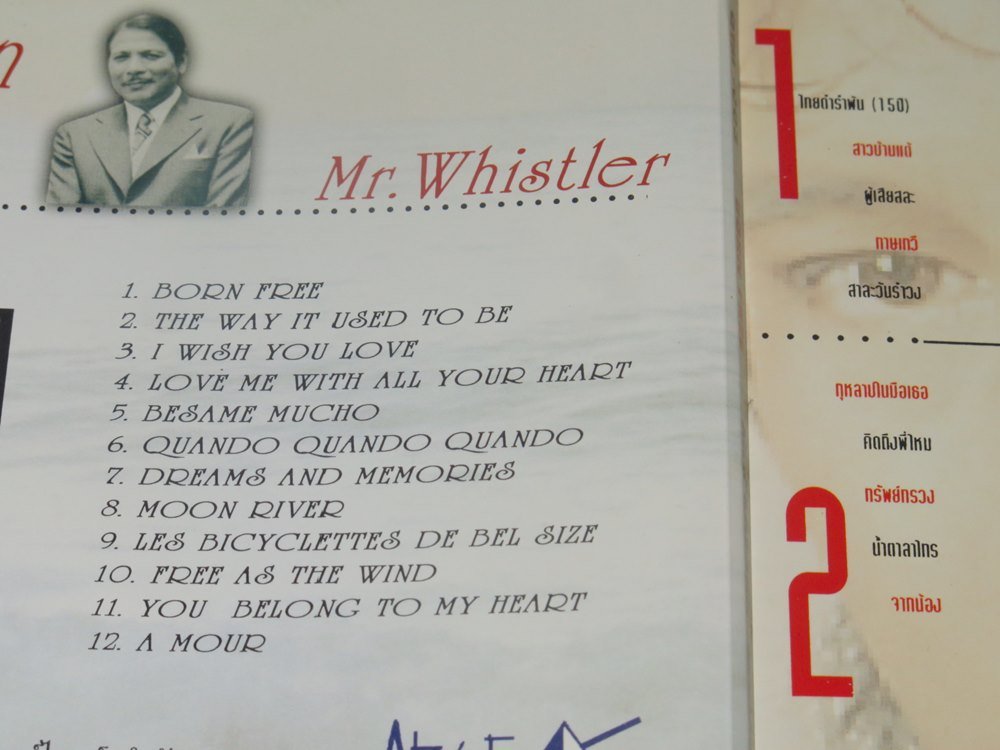 n
Mr. Whistler
1. BORN FREE
2. THE WAY IT USED TO BE
3. I WISH YOU LOVE
4. LOVE ME WITH ALL YOUR HEART
5. BESAME MUCHO
6. QUANDO QUANDO QUANDO
7. DREAMS AND MEMORIES
8. MOON RIVER
9. LES BICYCLETTES DE BEL SIZE
10. FREE AS THE WIND
11. YOU BELONG TO MY HEART
12. A MOUR
1
ไทยดำรำพัน (150)
สาวบ้านแต้
ผู้เสียสละ
กาษเทวี
สาละวันรำวง
2
กุหลาบในมือเธอ
คิดถึงพี่ไหม
ทรัพย์ทรวง
น้ำตาลาไทร
จากน้อง